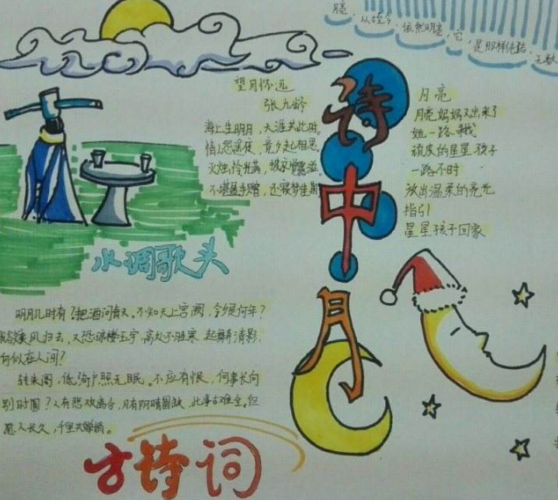 望月怀远
张九龄
海上生明月，天涯共此时。
情人怨遥夜，竟夕起相思。
灭烛怜光满，披衣觉露滋。
不堪盈手赠，还寝梦佳期
诗中月
月亮
月亮妈妈又出来了
她一路
顽皮的星星孩子
一路不时
放出温柔的亮光
指引
星星孩子回家
水调歌头
明月几时有？把酒问青天。不知天上宫阙，今夕是何年？
乘风归去，又恐琼楼玉宇，高处不胜寒 起舞弄清影，
何似在人间？
转朱阁，低绮户，照无眠。不应有恨，何事长向
别时圆？人有悲欢离合，月有阴晴圆缺，此事古难全。但
愿人长久，千里共婵娟。
古诗词